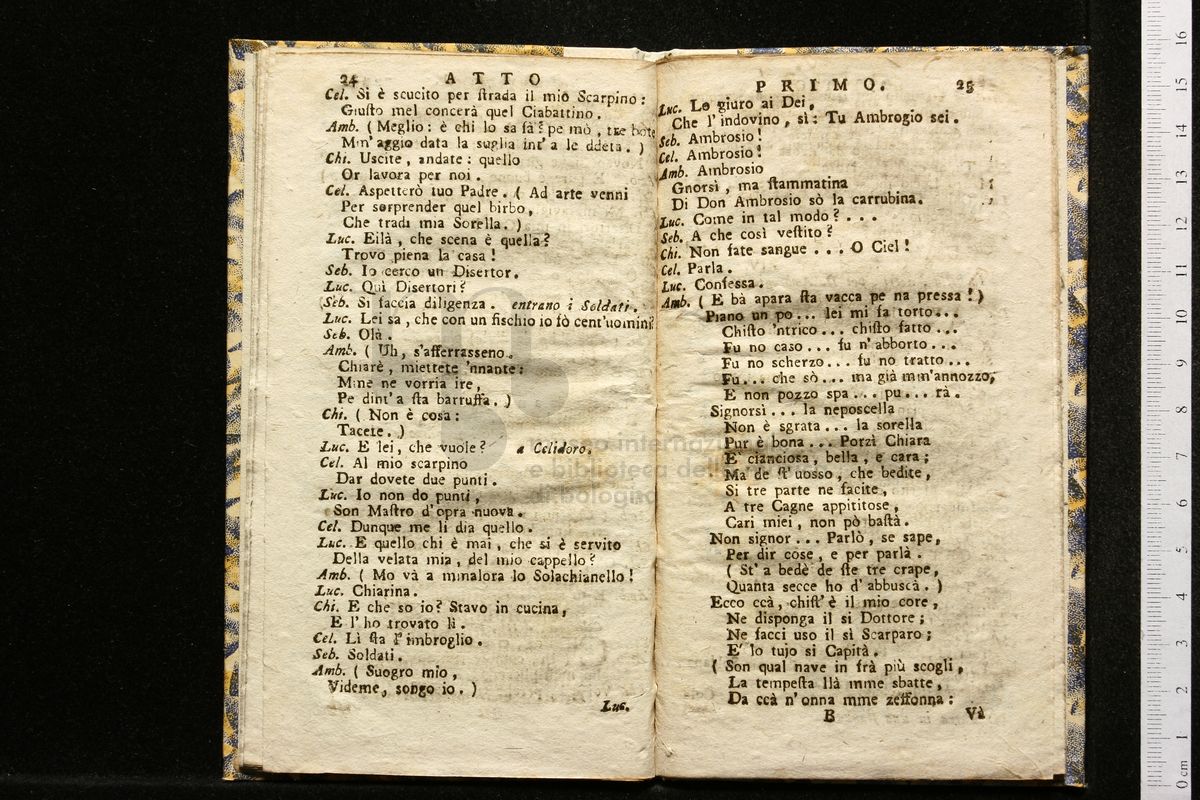 24 ATTO
Cel. Si è scucito per ſtrada il mio Scarpino:
Giuſto mel concerà quel Ciabattino.
Amb. ( Meglio: è chi lo sa fà? pe mò, tre bote
Mm'aggio data la suglia int'a le ddeta. )
Chi. Uscite, andate: quello
Or lavora per noi.
Cel. Aspetterò tuo Padre. ( Ad arte venni
Per sorprender quel birbo,
Che tradì mia Sorella. )
Luc. Eilà, che scena è quella?
Trovo piena la casa!
Seb. Io cerco un Disertor.
Luc. Quì Disertori?
Seb. Si faccia diligenza. entrano i Soldati.
Luc. Lei sa, che con un fischio io fò cent'uomini?
Seb. Olà.
Amb. ( Uh, s'afferrasseno.
Chiarè, miettete 'nnante:
Mme ne vorria ire,
Pe dint'a ſta barruffa. )
Chi. ( Non è cosa:
Tacete. )
Luc. E lei, che vuole? a Celidoro.
Cel. Al mio scarpino
Dar dovete due punti.
Luc. Io non do punti,
Son Maſtro d'opra nuova.
Cel. Dunque me li dia quello.
Luc. E quello chi è mai, che si è servito
Della velata mia, del mio cappello?
Amb. ( Mo và a mmalora lo Solachianello!
Luc. Chiarina.
Chi. E che so io? Stavo in cucina,
E l'ho trovato lì.
Cel. Lì ſta l'imbroglio.
Seb. Soldati.
Amb. ( Suogro mio,
Videme, songo io. )
Luc.
PRIMO. 25
Luc. Lo giuro ai Dei,
Che l'indovino, sì: Tu Ambrogio sei.
Seb. Ambrosio!
Cel. Ambrosio!
Amb. Ambrosio
Gnorsì, ma ſtammatina
Di Don Ambrosio sò la carrubina.
Luc. Come in tal modo? . . .
Seb. A che così veſtito?
Chi. Non fate sangue . . . O Ciel!
Cel. Parla.
Luc. Confessa.
Amb. ( E bà apara ſta vacca pe na pressa!)
Piano un po... lei mi fa torto...
Chiſto 'ntrico... chiſto fatto...
Fu no caso... fu n'abborto...
Fu no scherzo... fu no tratto...
Fu... che sò... ma già mm'annozzo,
E non pozzo spa... pu... rà.
Signorsì... la neposcella
Non è sgrata... la sorella
Pur è bona... Porzì Chiara
E' cianciosa, bella, e cara;
Ma de ſt'uosso, che bedite,
Si tre parte ne facite,
A tre Cagne appititose,
Cari miei, non pò baſtà.
Non signor... Parlò, se sape,
Per dir cose, e per parlà.
( St'a bedè de ſte tre crape,
Quanta secce ho d'abbuscà. )
Ecco ccà, chiſt'è il mio core,
Ne disponga il si Dottore;
Ne facci uso il sì Scarparo;
E' lo tujo si Capità.
( Son qual nave in frà più scogli,
La tempeſta llà mme sbatte,
Da ccà n'onna mme zeffonna:
B Và